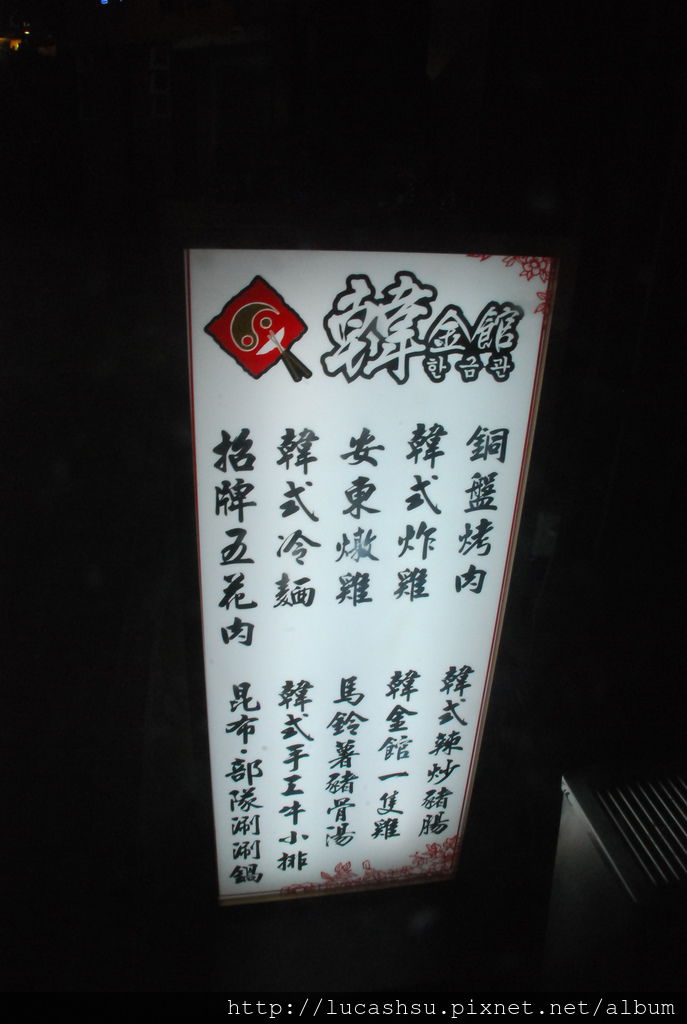 韓金館
한금관
銅盤烤肉
韓式炸雞
安東燉雞
韓式冷麵
招牌五花肉
韓式辣炒豬腸
韓金館一隻雞
馬鈴薯豬骨湯
韓式手工牛小排
昆布·部隊涮涮鍋
http://lucashsu.pixnet.net/album